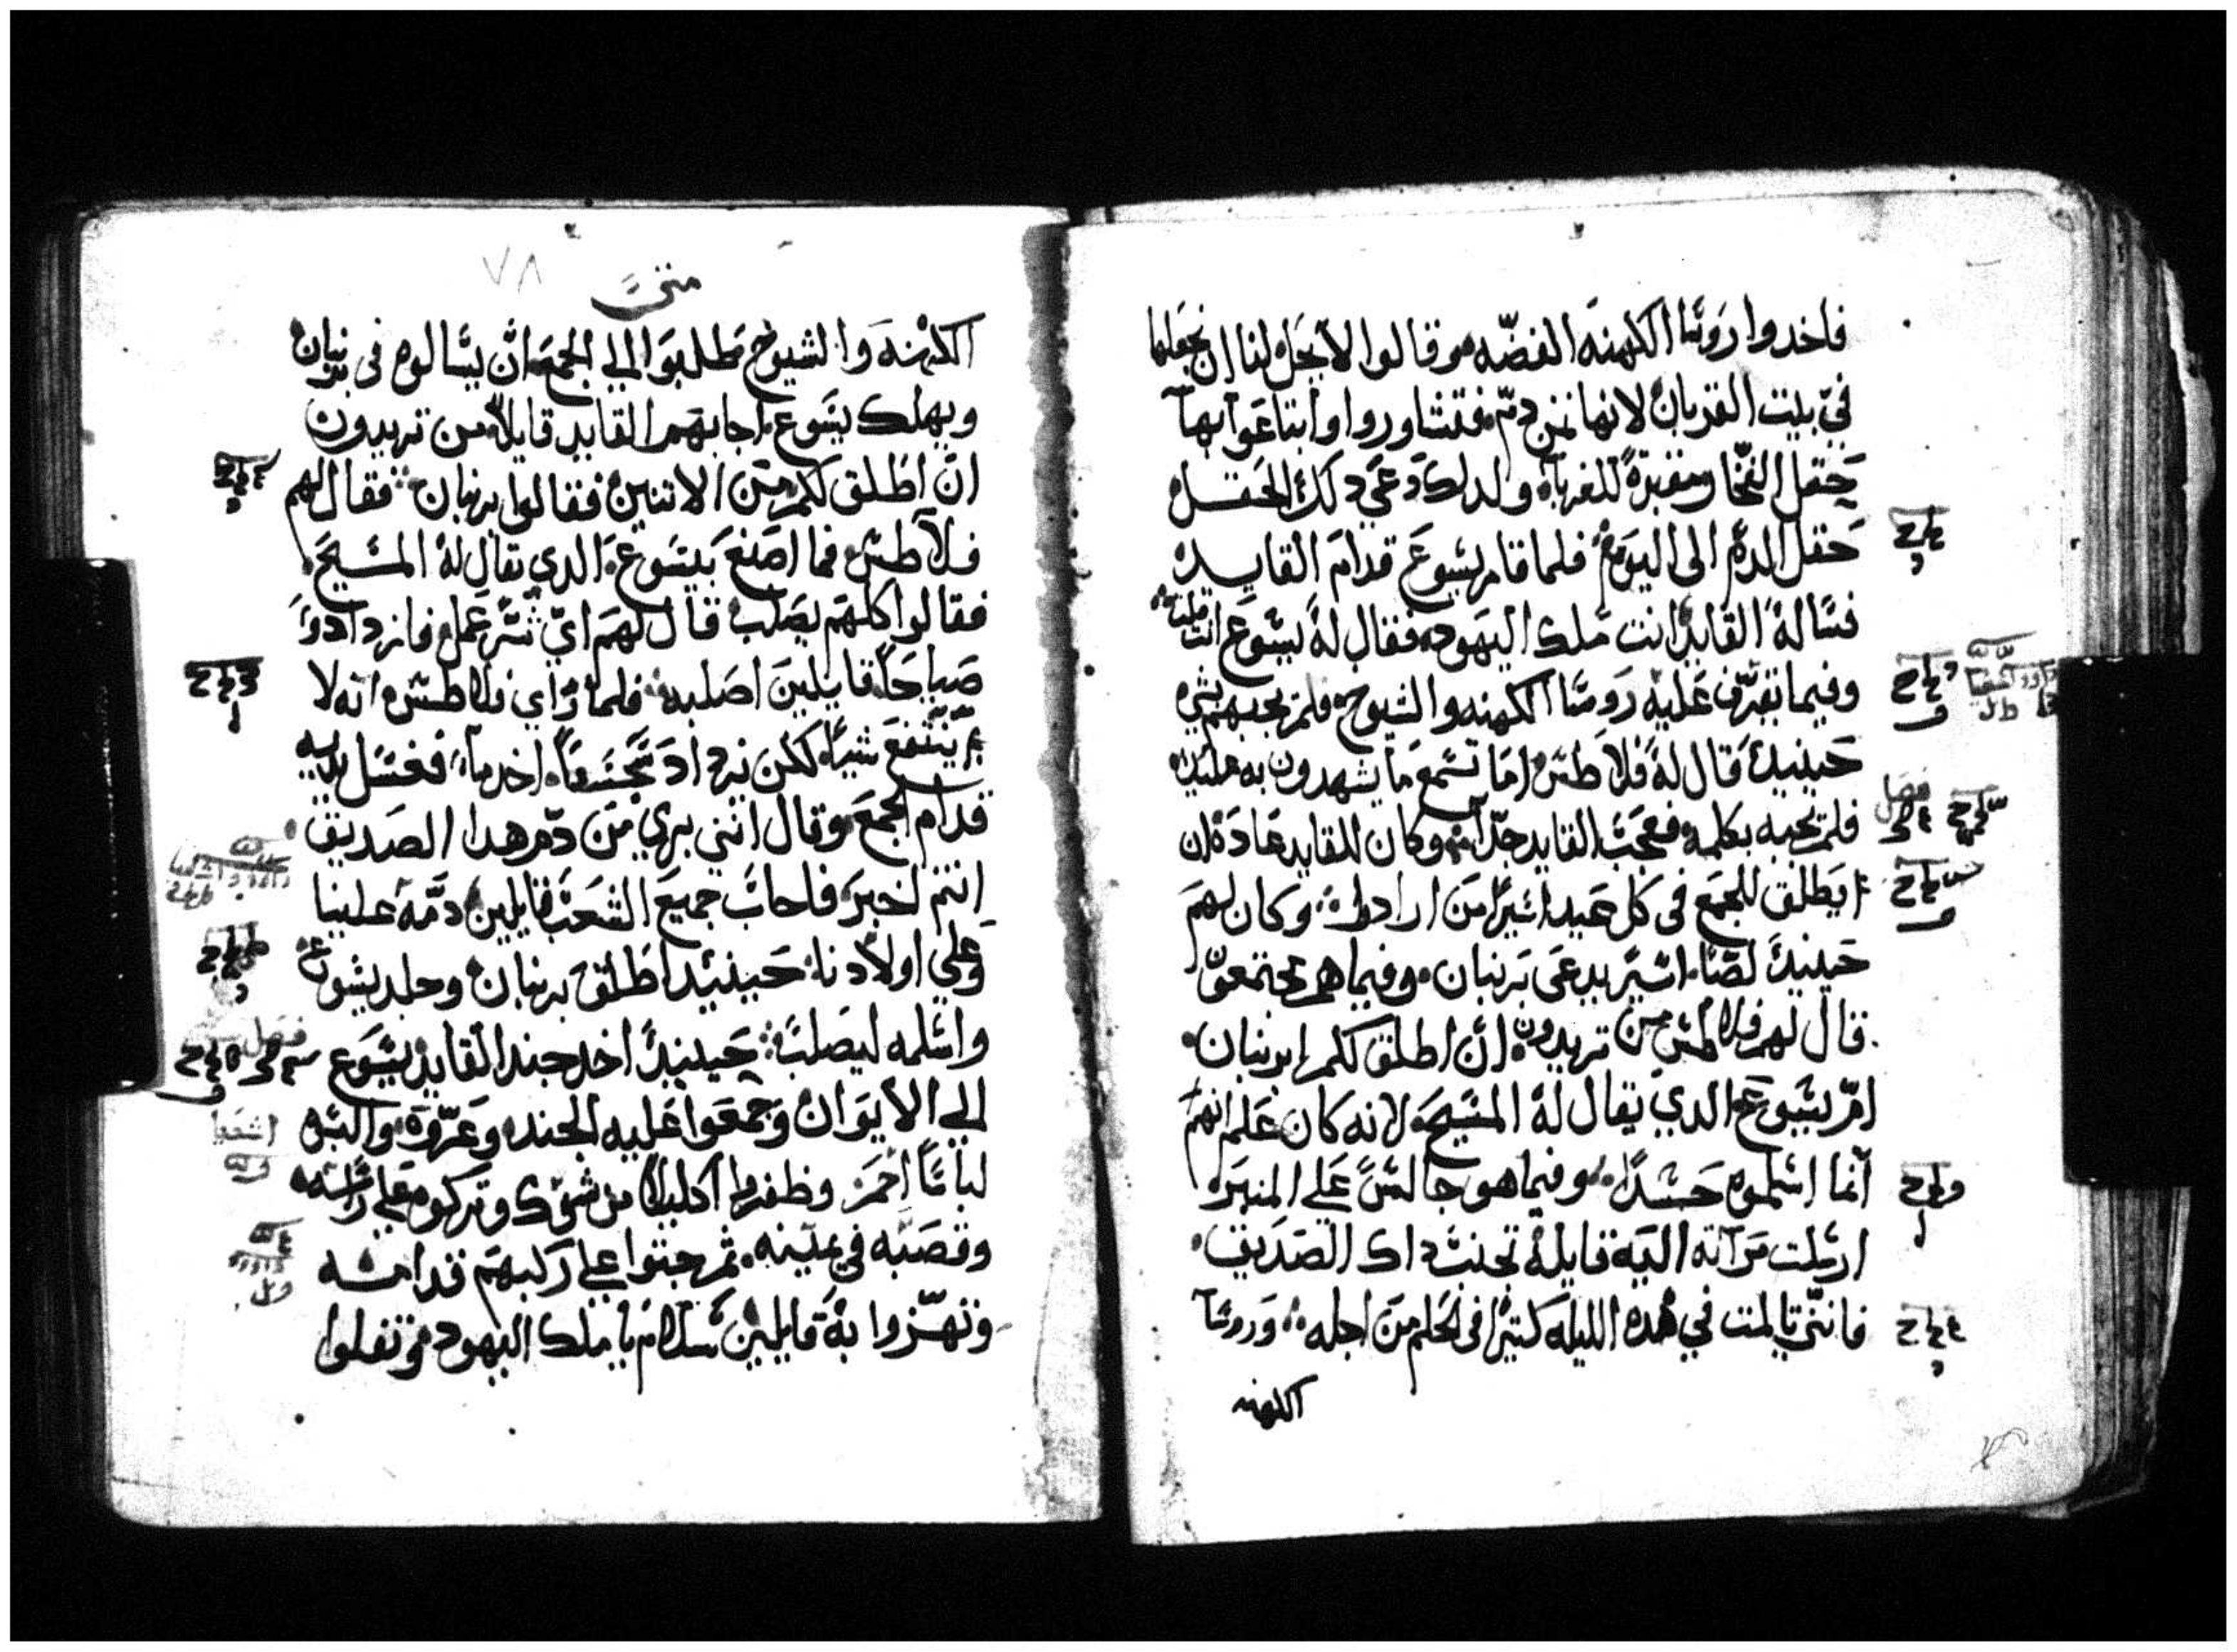 فاخدوا روسا الكهنه الفضه وقالوا لا يحل لنا ان نجعلها
في بيت القربان لانها ثمن دم فتشاوروا وابتاعوا بها
حقل الفخار مقبرة للغربآ ولدلك دعي دلك الحقل
حقل الدم الى اليوم فلما قام يسوع قدام القايد
فساله القايد انت ملك اليهود فقال له يسوع انت قلت
وفيما تقرف عليه روسا الكهنه والشيوخ فلم يجبهم بشي
حينيد قال له فلاطس اما تسمع ما يشهدون به عليك
فلم يجبه بكلمه فعجب القايد جدا وكان للقايد عادة ان
يطلق للجمع في كل عيد اسيرا من ارادوا وكان لهم
حينيد لصا اسير يدعى برنبان وفيما هم مجتمعون
قال لهم فلاطس من تريدون ان اطلق لكم ابرنبان
ام يسوع الدي يقال له المسيح لانه كان علم انهم
انما اسلموه حسدا وفيما هو جالس على المنبر
ارسلت مراته اليه قايله تجنب داك الصديق
فانني تالمت في هده الليله كتيرا في الحلم من اجله وروسا
الكهنه
متى
٧٨
الكهنه والشيوخ طلبوا الي الجمع ان يسالوه في برنبان
ويهلك يسوع اجابهم القايد قايلا من تريدون
ان اطلق لكم من الاتنين فقالوا برنبان فقال لهم
فلاطس فما اصنع بيسوع الدي يقال له المسيح
فقالوا كلهم يصلب قال لهم اي شر عمل فازدادوا
صياحا قايلين اصلبه فلما راي فلاطس انه لا
ينتفع شيا لكن يزداد سجسا اخد مآ فغسل يديه
قدام الجمع وقال انني بري من دم هدا الصديق
انتم اخبر فاجاب جميع الشعب قايلين دمه علينا
وعلي اولادنا حينيد اطلق برنبان وجلد يسوع
واسلمه ليصلب حينيد اخد جند القايد يسوع
الي الايوان وجمعوا عليه الجند وعروه والبسوه
لباسا احمر وظفروا اكليلا من شوك وتركوه علي راسه
وقصبه في يمينه ثم جتوا علي ركبهم قدامه
وتهزوا به قايلين سلام يا ملك اليهود وتفلوا